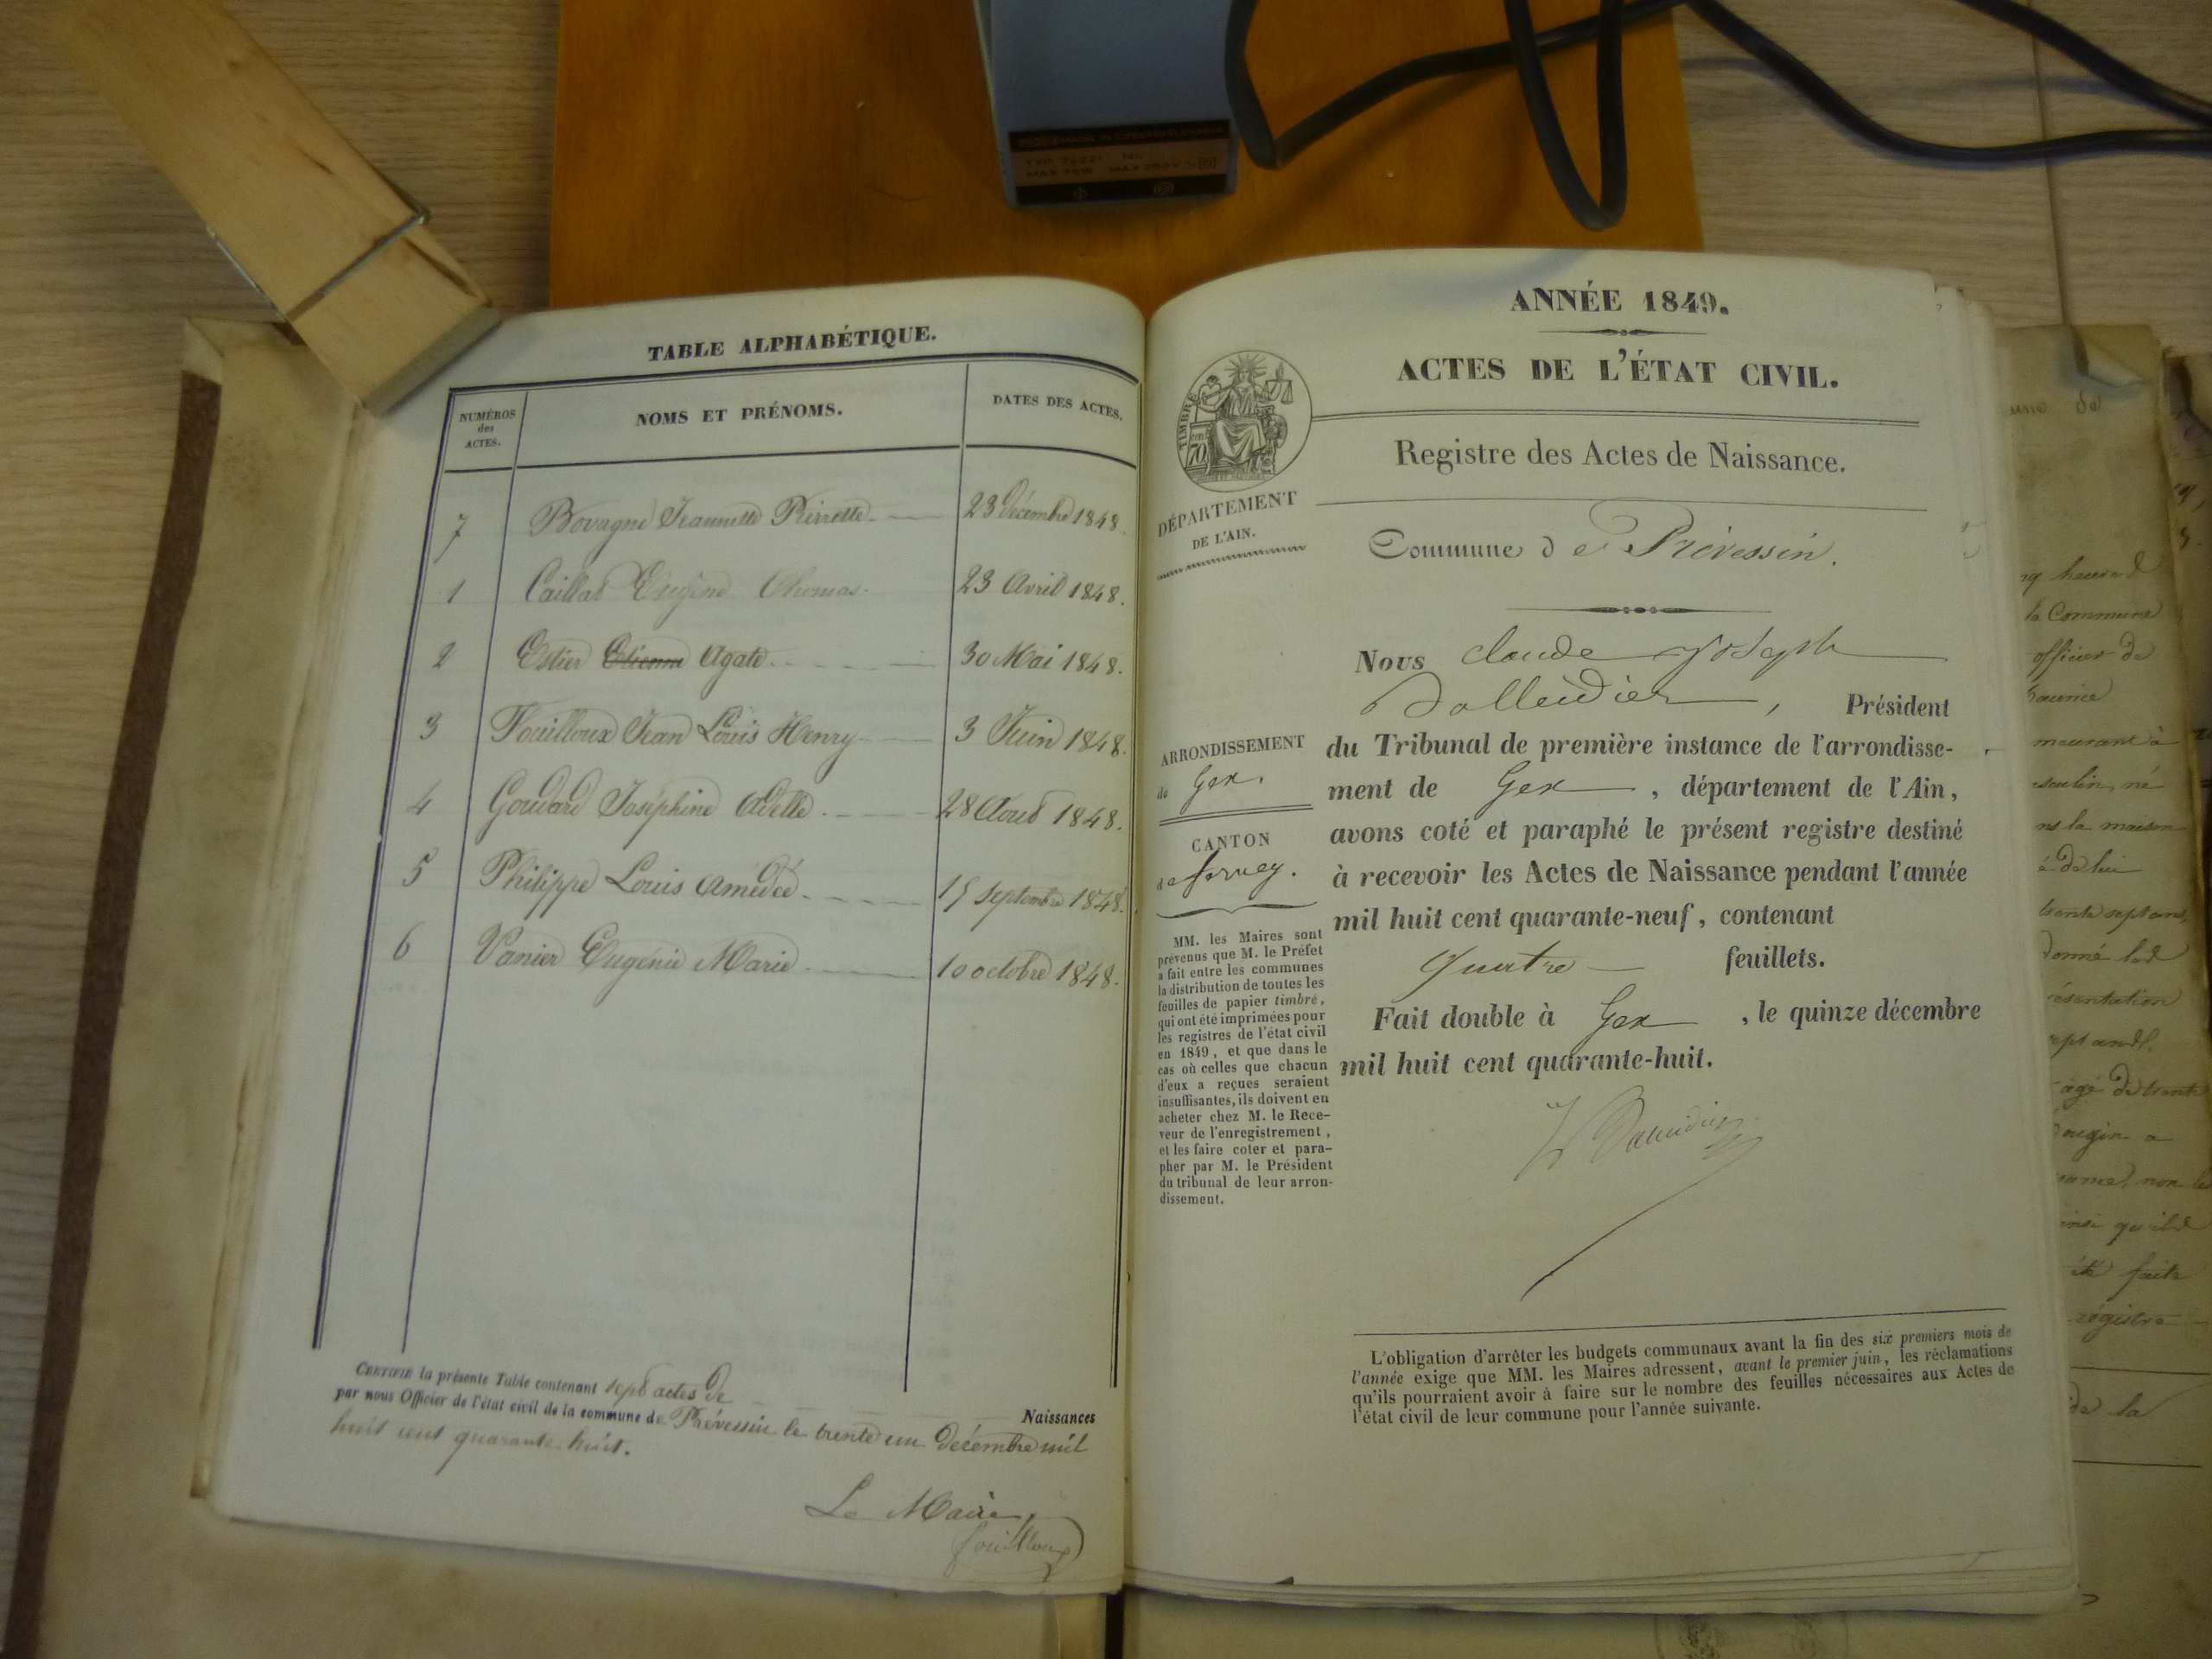 TABLE ALPHABÉTIQUE.
NUMÉROS des ACTES. NOMS ET PRÉNOMS. DATES DES ACTES.
7 Bovagne Jeannette Pierrette 23 Décembre 1848.
1 Caillat Eugène Thomas. 23 Avril 1848.
2 Estier Etienne Agate. 30 Mai 1848.
3 Fouilloux Jean Louis Henry 3 Juin 1848.
4 Goudard Joséphine Adelle. 28 Aout 1848.
5 Philippe Louis Amédée. 15 Septembre 1848.
6 Vanier Eugénie Marie. 10 octobre 1848.
CERTIFIÉ la présente Table contenant sept actes de
Naissances
par nous Officier de l'état civil de la commune de Prévessin le trente un Décembre mil
huit cent quarante huit.
Le Maire,
fouilloux
ANNÉE 1849.
ACTES DE L'ÉTAT CIVIL.
TIMBRE
70
Registre des Actes de Naissance.
DÉPARTEMENT
DE L'AIN.
Commune de Prévessin.
Nous Claude Joseph
, Président
ARRONDISSEMENT
de Gex.
CANTON
de ferney.
du Tribunal de première instance de l'arrondisse-
ment de Gex , département de l'Ain,
avons coté et paraphé le présent registre destiné
à recevoir les Actes de Naissance pendant l'année
mil huit cent quarante-neuf, contenant
quatre feuillets.
Fait double à Gex , le quinze décembre
mil huit cent quarante-huit.
MM. les Maires sont
prévenus que M. le Préfet
a fait entre les communes
la distribution de toutes les
feuilles de papier timbré,
qui ont été imprimées pour
les registres de l'état civil
en 1849, et que dans le
cas où celles que chacun
d'eux a reçues seraient
insuffisantes, ils doivent en
acheter chez M. le Rece-
veur de l'enregistrement,
et les faire coter et para-
pher par M. le Président
du tribunal de leur arron-
dissement.
L'obligation d'arrêter les budgets communaux avant la fin des six premiers mois de
l'année exige que MM. les Maires adressent, avant le premier juin, les réclamations
qu'ils pourraient avoir à faire sur le nombre des feuilles nécessaires aux Actes de
l'état civil de leur commune pour l'année suivante.
la Commune
officier de
ns la maison
é de lui
trente sept ans,
donné les
age de trente
été faite
registre
de la